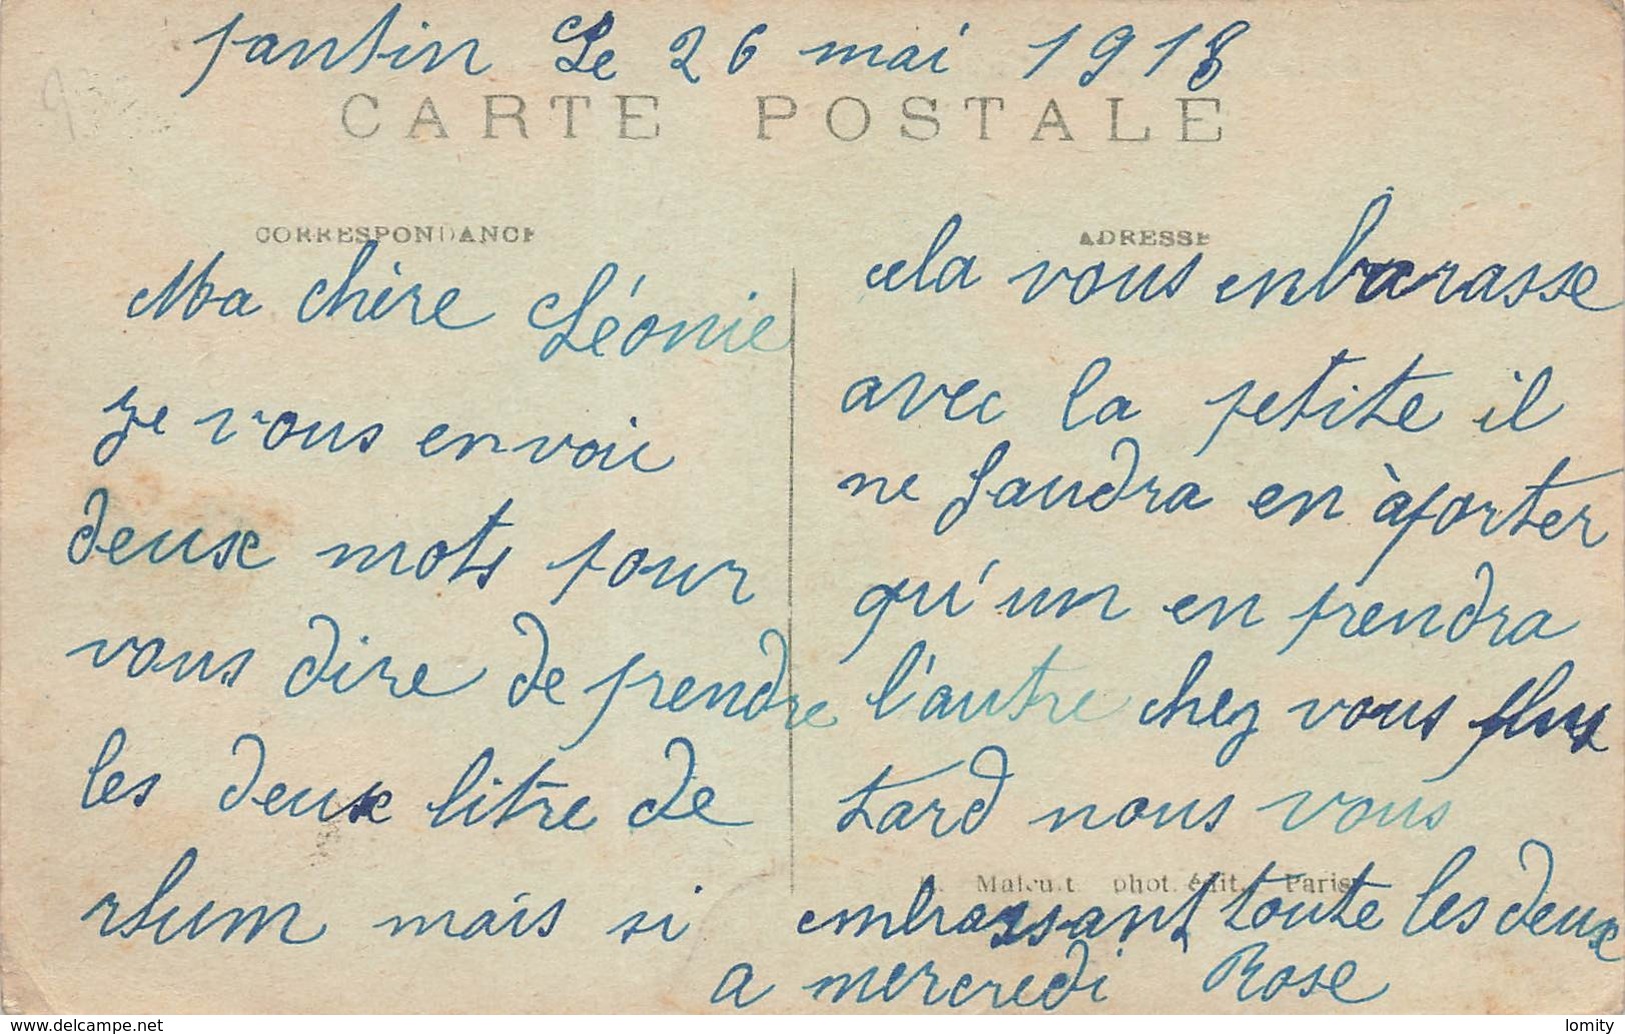 pantin Le 26 mai 1918
CARTE POSTALE
CORRESPONDANCE
ADRESSE
Ma chère Léonie
je vous envoie
deux mots pour
vous dire de prendre
les deux litre de
rhum mais si
cela vous enbarasse
avec la petite il
ne faudra en àporter
qu'un en prendra
l'autre chez vous plus
tard nous vous
phot. édit. Paris
embrassant toute les deux
a mercredi Rose
delcampe.net
lomity